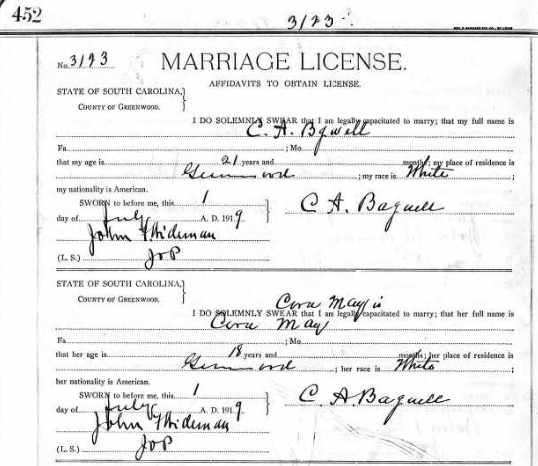 452
3193
No. 3193 MARRIAGE LICENSE.
AFFIDAVITS TO OBTAIN LICENSE.
STATE OF SOUTH CAROLINA,
COUNTY OF GREENWOOD.
I DO SOLEMNLY SWEAR that I am legally capacitated to marry; that my full name is
C. A. Bgwell
Fa ; Mo
that my age is 21 years and months; my place of residence is
Greenwood ; my race is White ;
my nationality is American.
SWORN to before me, this 1
day of July A. D. 1919
C A. Bagwell
John F Wideman
(L. S.) JoP
STATE OF SOUTH CAROLINA,
COUNTY OF GREENWOOD.
Cora May is
I DO SOLEMNLY SWEAR that I am legally capacitated to marry; that her full name is
Cora May
Fa ; Mo
that her age is 18 years and months; her place of residence is
Greenwood ; her race is White ;
her nationality is American.
SWORN to before me, this 1
day of July A. D. 1919
C. A Bagwell
John F Wideman
(L. S.) JoP